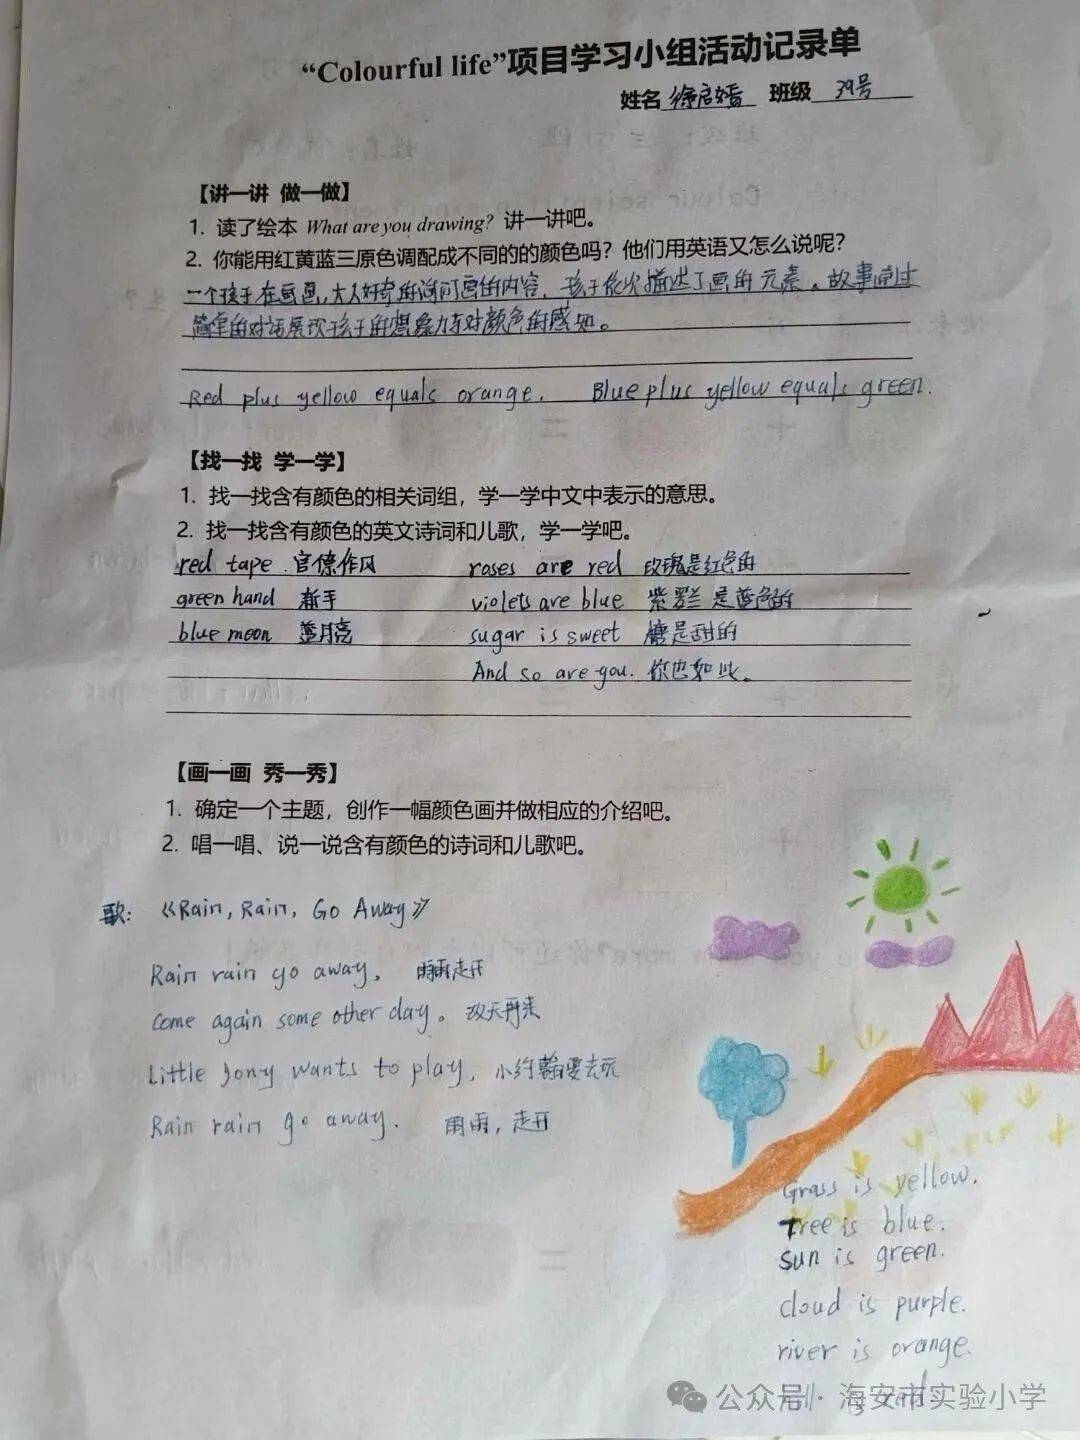 “Colourful life”项目学习小组活动记录单
姓名 徐启嫣 班级 39号
【讲一讲 做一做】
1. 读了绘本 What are you drawing? 讲一讲吧。
2. 你能用红黄蓝三原色调配成不同的的颜色吗？他们用英语又怎么说呢？
一个孩子在画画，大人好奇的询问画的内容，孩子依次描述了画的元素。故事通过
简单的对话展现孩子的想象力与对颜色的感知。
Red plus yellow equals orange. Blue plus yellow equals green.
【找一找 学一学】
1. 找一找含有颜色的相关词组，学一学中文中表示的意思。
2. 找一找含有颜色的英文诗词和儿歌，学一学吧。
red tape 官僚作风 roses are red 玫瑰是红色的
green hand 新手 violets are blue 紫罗兰是蓝色的
blue moon 蓝月亮 sugar is sweet 糖是甜的
And so are you. 你也如此。
【画一画 秀一秀】
1. 确定一个主题，创作一幅颜色画并做相应的介绍吧。
2. 唱一唱、说一说含有颜色的诗词和儿歌吧。
歌：《Rain, Rain, Go Away》
Rain rain go away, 雨雨走开
Come again some other day。改天再来
Little Jony wants to play, 小约翰要去玩
Rain rain go away. 雨雨，走开
Grass is yellow.
Tree is blue.
Sun is green.
cloud is purple.
river is orange.
is red.
公众号·海安市实验小学